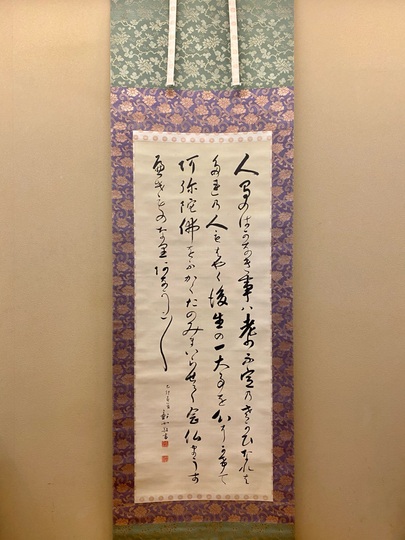 人間のはかなき事ハ老少不定乃さかひなれは
たれ乃人もはやく後生の一大事を心にかけて
阿弥陀佛をふかくたのみまいらせて念仏まうす
へきものなりあなかしこ〱